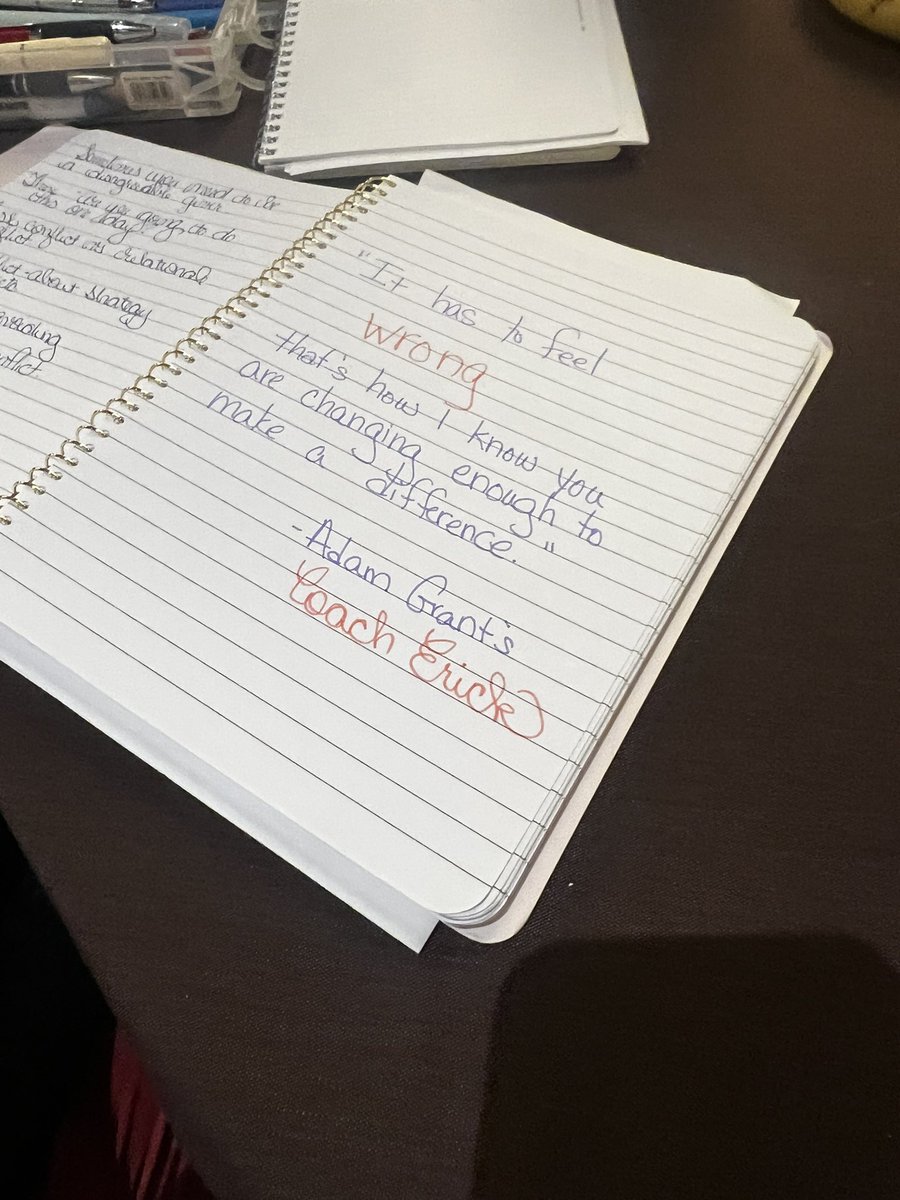 Sometimes you need to be
a disagreeable giver
are you going to do
this one day
conflict is relational
about strategy
"It has to feel
wrong
that's how I know you
are changing enough to
make a difference."
-Adam Grant's
Coach Erick